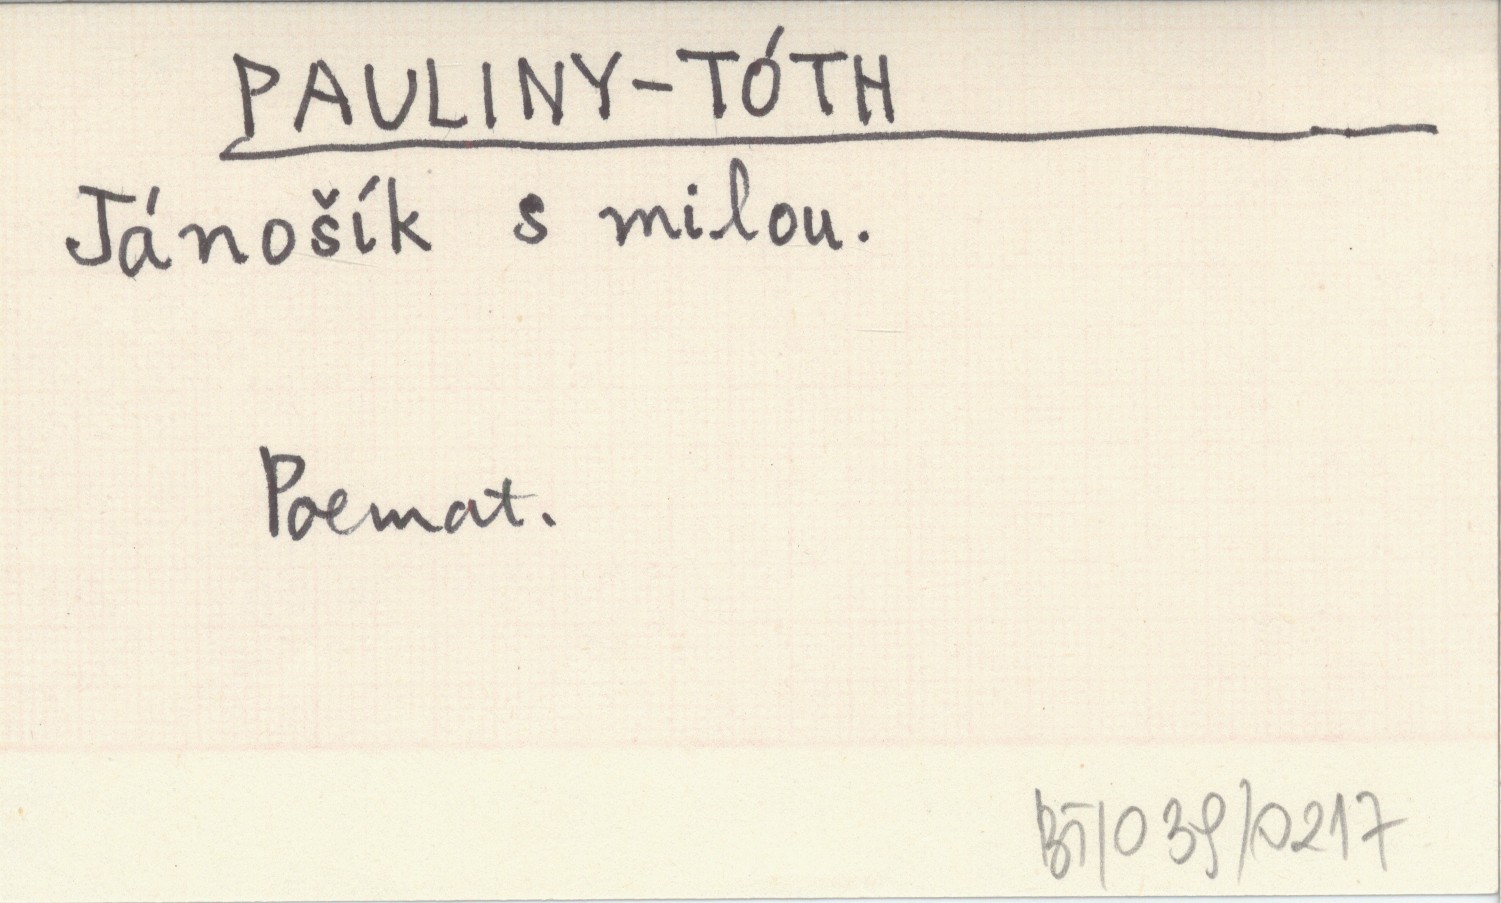 PAULINY-TÓTH
Jánošík s milou.
Poemat.
BT/039/0217